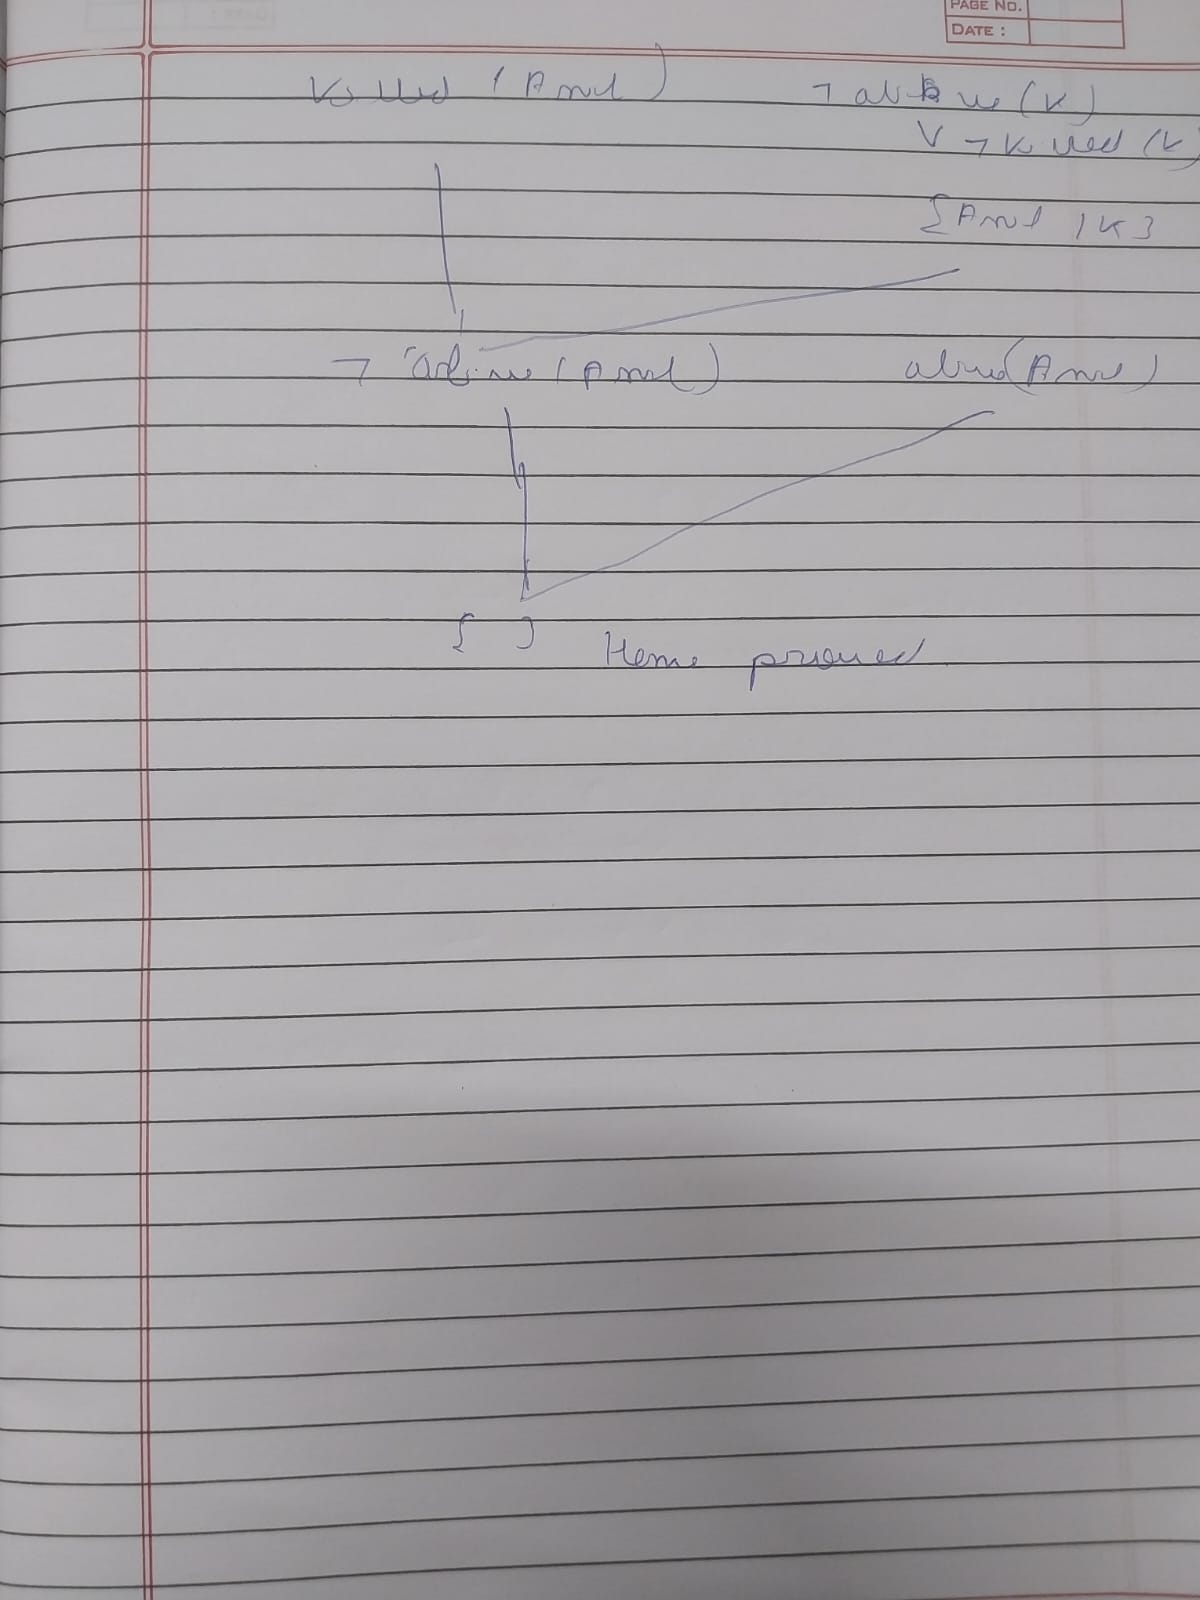 PAGE NO.
DATE :
Killed (Anil) ¬ alive (k)
V ¬ killed (k)
{Anil / k}
¬ alive (Anil) alive (Anil)
{ } Hence proved